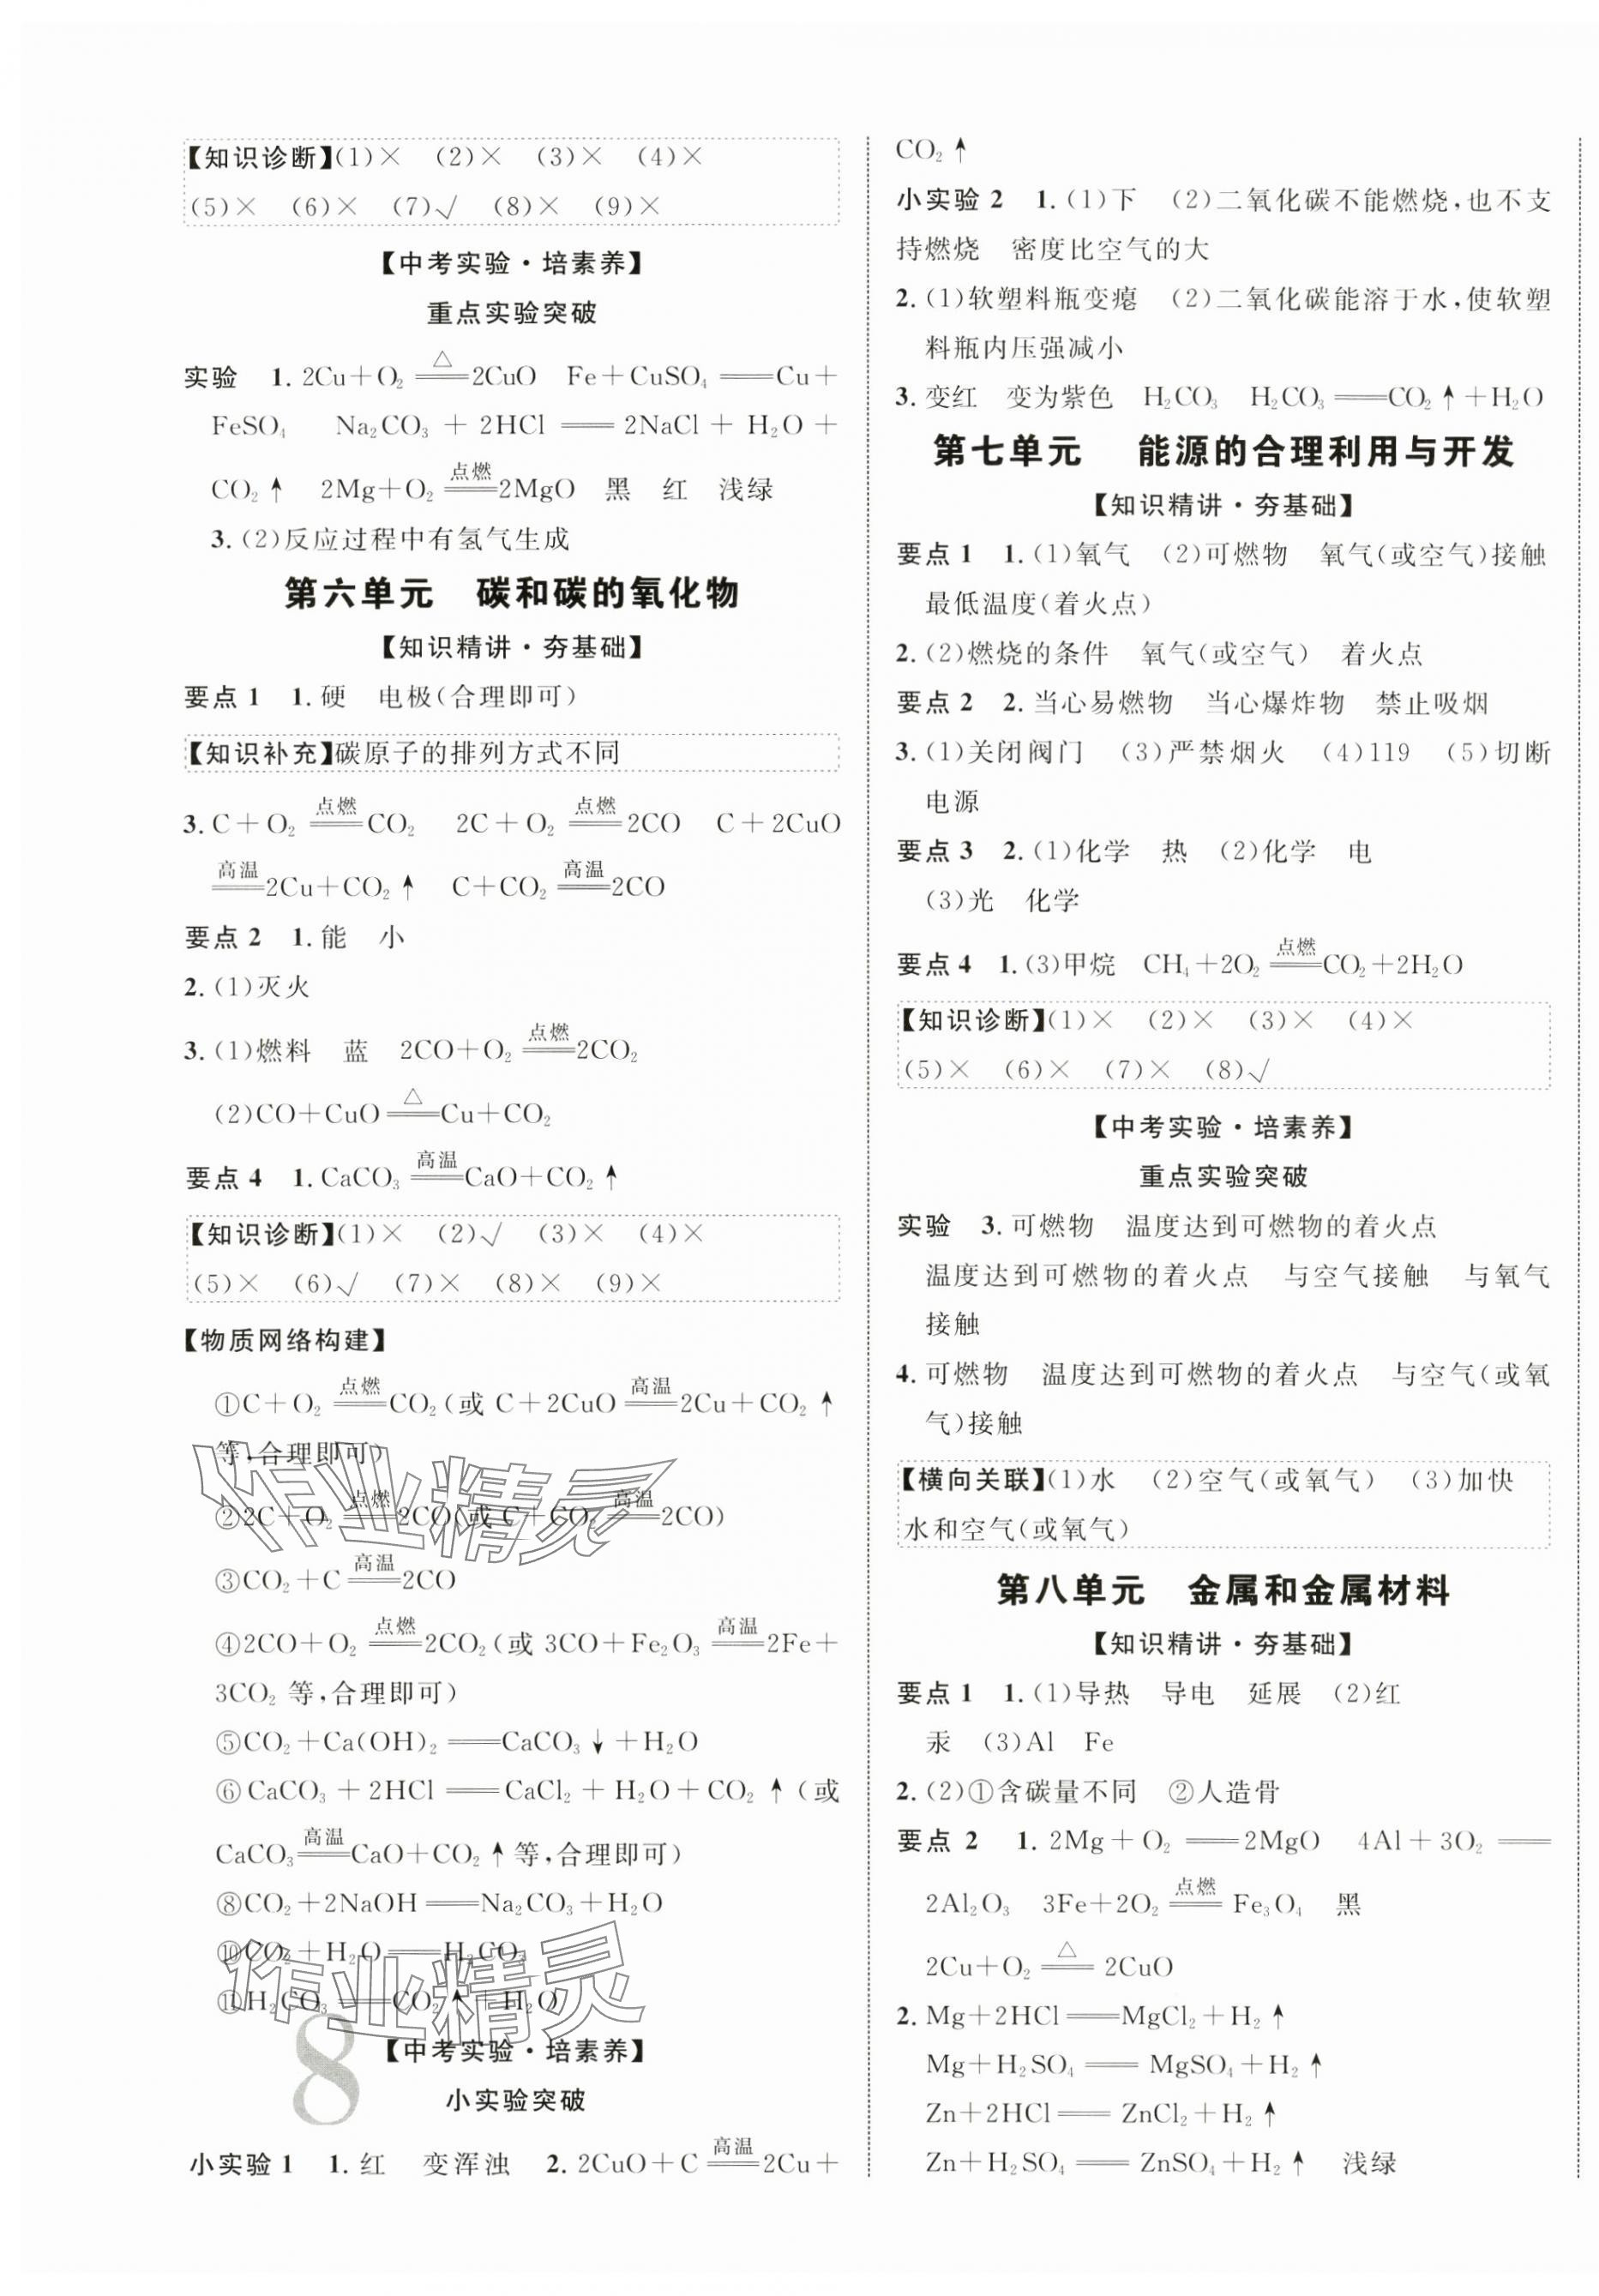 【知识诊断】(1)× (2)× (3)× (4)×
(5)× (6)× (7)√ (8)× (9)×
【中考实验·培素养】
重点实验突破
实验 1. 2Cu+O₂ ==△== 2CuO Fe+CuSO₄ == Cu+
FeSO₄ Na₂CO₃ + 2HCl == 2NaCl + H₂O +
CO₂↑ 2Mg+O₂ ==点燃== 2MgO 黑 红 浅绿
3. (2)反应过程中有氢气生成
第六单元 碳和碳的氧化物
【知识精讲·夯基础】
要点1 1. 硬 电极(合理即可)
【知识补充】碳原子的排列方式不同
3. C+O₂ ==点燃== CO₂ 2C+O₂ ==点燃== 2CO C+2CuO
==高温== 2Cu+CO₂↑ C+CO₂ ==高温== 2CO
要点2 1. 能 小
2. (1)灭火
3. (1)燃料 蓝 2CO+O₂ ==点燃== 2CO₂
(2)CO+CuO ==△== Cu+CO₂
要点4 1. CaCO₃ ==高温== CaO+CO₂↑
【知识诊断】(1)× (2)√ (3)× (4)×
(5)× (6)√ (7)× (8)× (9)×
【物质网络构建】
①C+O₂ ==点燃== CO₂(或 C+2CuO ==高温== 2Cu+CO₂↑
等,合理即可)
②2C+O₂ ==点燃== 2CO(或 C+CO₂ ==高温== 2CO)
③CO₂+C ==高温== 2CO
④2CO+O₂ ==点燃== 2CO₂(或 3CO+Fe₂O₃ ==高温== 2Fe+
3CO₂ 等,合理即可)
⑤CO₂+Ca(OH)₂ == CaCO₃↓+H₂O
⑥CaCO₃ + 2HCl == CaCl₂ + H₂O + CO₂↑(或
CaCO₃ ==高温== CaO+CO₂↑等,合理即可)
⑧CO₂+2NaOH == Na₂CO₃+H₂O
⑩CO₂+H₂O == H₂CO₃
⑪H₂CO₃ == CO₂↑+H₂O
【中考实验·培素养】
小实验突破
小实验1 1. 红 变浑浊 2. 2CuO+C ==高温== 2Cu+
CO₂↑
小实验2 1. (1)下 (2)二氧化碳不能燃烧,也不支
持燃烧 密度比空气的大
2. (1)软塑料瓶变瘪 (2)二氧化碳能溶于水,使软塑
料瓶内压强减小
3. 变红 变为紫色 H₂CO₃ H₂CO₃ == CO₂↑+H₂O
第七单元 能源的合理利用与开发
【知识精讲·夯基础】
要点1 1. (1)氧气 (2)可燃物 氧气(或空气)接触
最低温度(着火点)
2. (2)燃烧的条件 氧气(或空气) 着火点
要点2 2. 当心易燃物 当心爆炸物 禁止吸烟
3. (1)关闭阀门 (3)严禁烟火 (4)119 (5)切断
电源
要点3 2. (1)化学 热 (2)化学 电
(3)光 化学
要点4 1. (3)甲烷 CH₄+2O₂ ==点燃== CO₂+2H₂O
【知识诊断】(1)× (2)× (3)× (4)×
(5)× (6)× (7)× (8)√
【中考实验·培素养】
重点实验突破
实验 3. 可燃物 温度达到可燃物的着火点
温度达到可燃物的着火点 与空气接触 与氧气
接触
4. 可燃物 温度达到可燃物的着火点 与空气(或氧
气)接触
【横向关联】(1)水 (2)空气(或氧气) (3)加快
水和空气(或氧气)
第八单元 金属和金属材料
【知识精讲·夯基础】
要点1 1. (1)导热 导电 延展 (2)红
汞 (3)Al Fe
2. (2)①含碳量不同 ②人造骨
要点2 1. 2Mg+O₂ == 2MgO 4Al+3O₂ ==
2Al₂O₃ 3Fe+2O₂ ==点燃== Fe₃O₄ 黑
2Cu+O₂ ==△== 2CuO
2. Mg+2HCl == MgCl₂+H₂↑
Mg+H₂SO₄ == MgSO₄+H₂↑
Zn+2HCl == ZnCl₂+H₂↑
Zn+H₂SO₄ == ZnSO₄+H₂↑ 浅绿
作业精灵
作业精灵
8